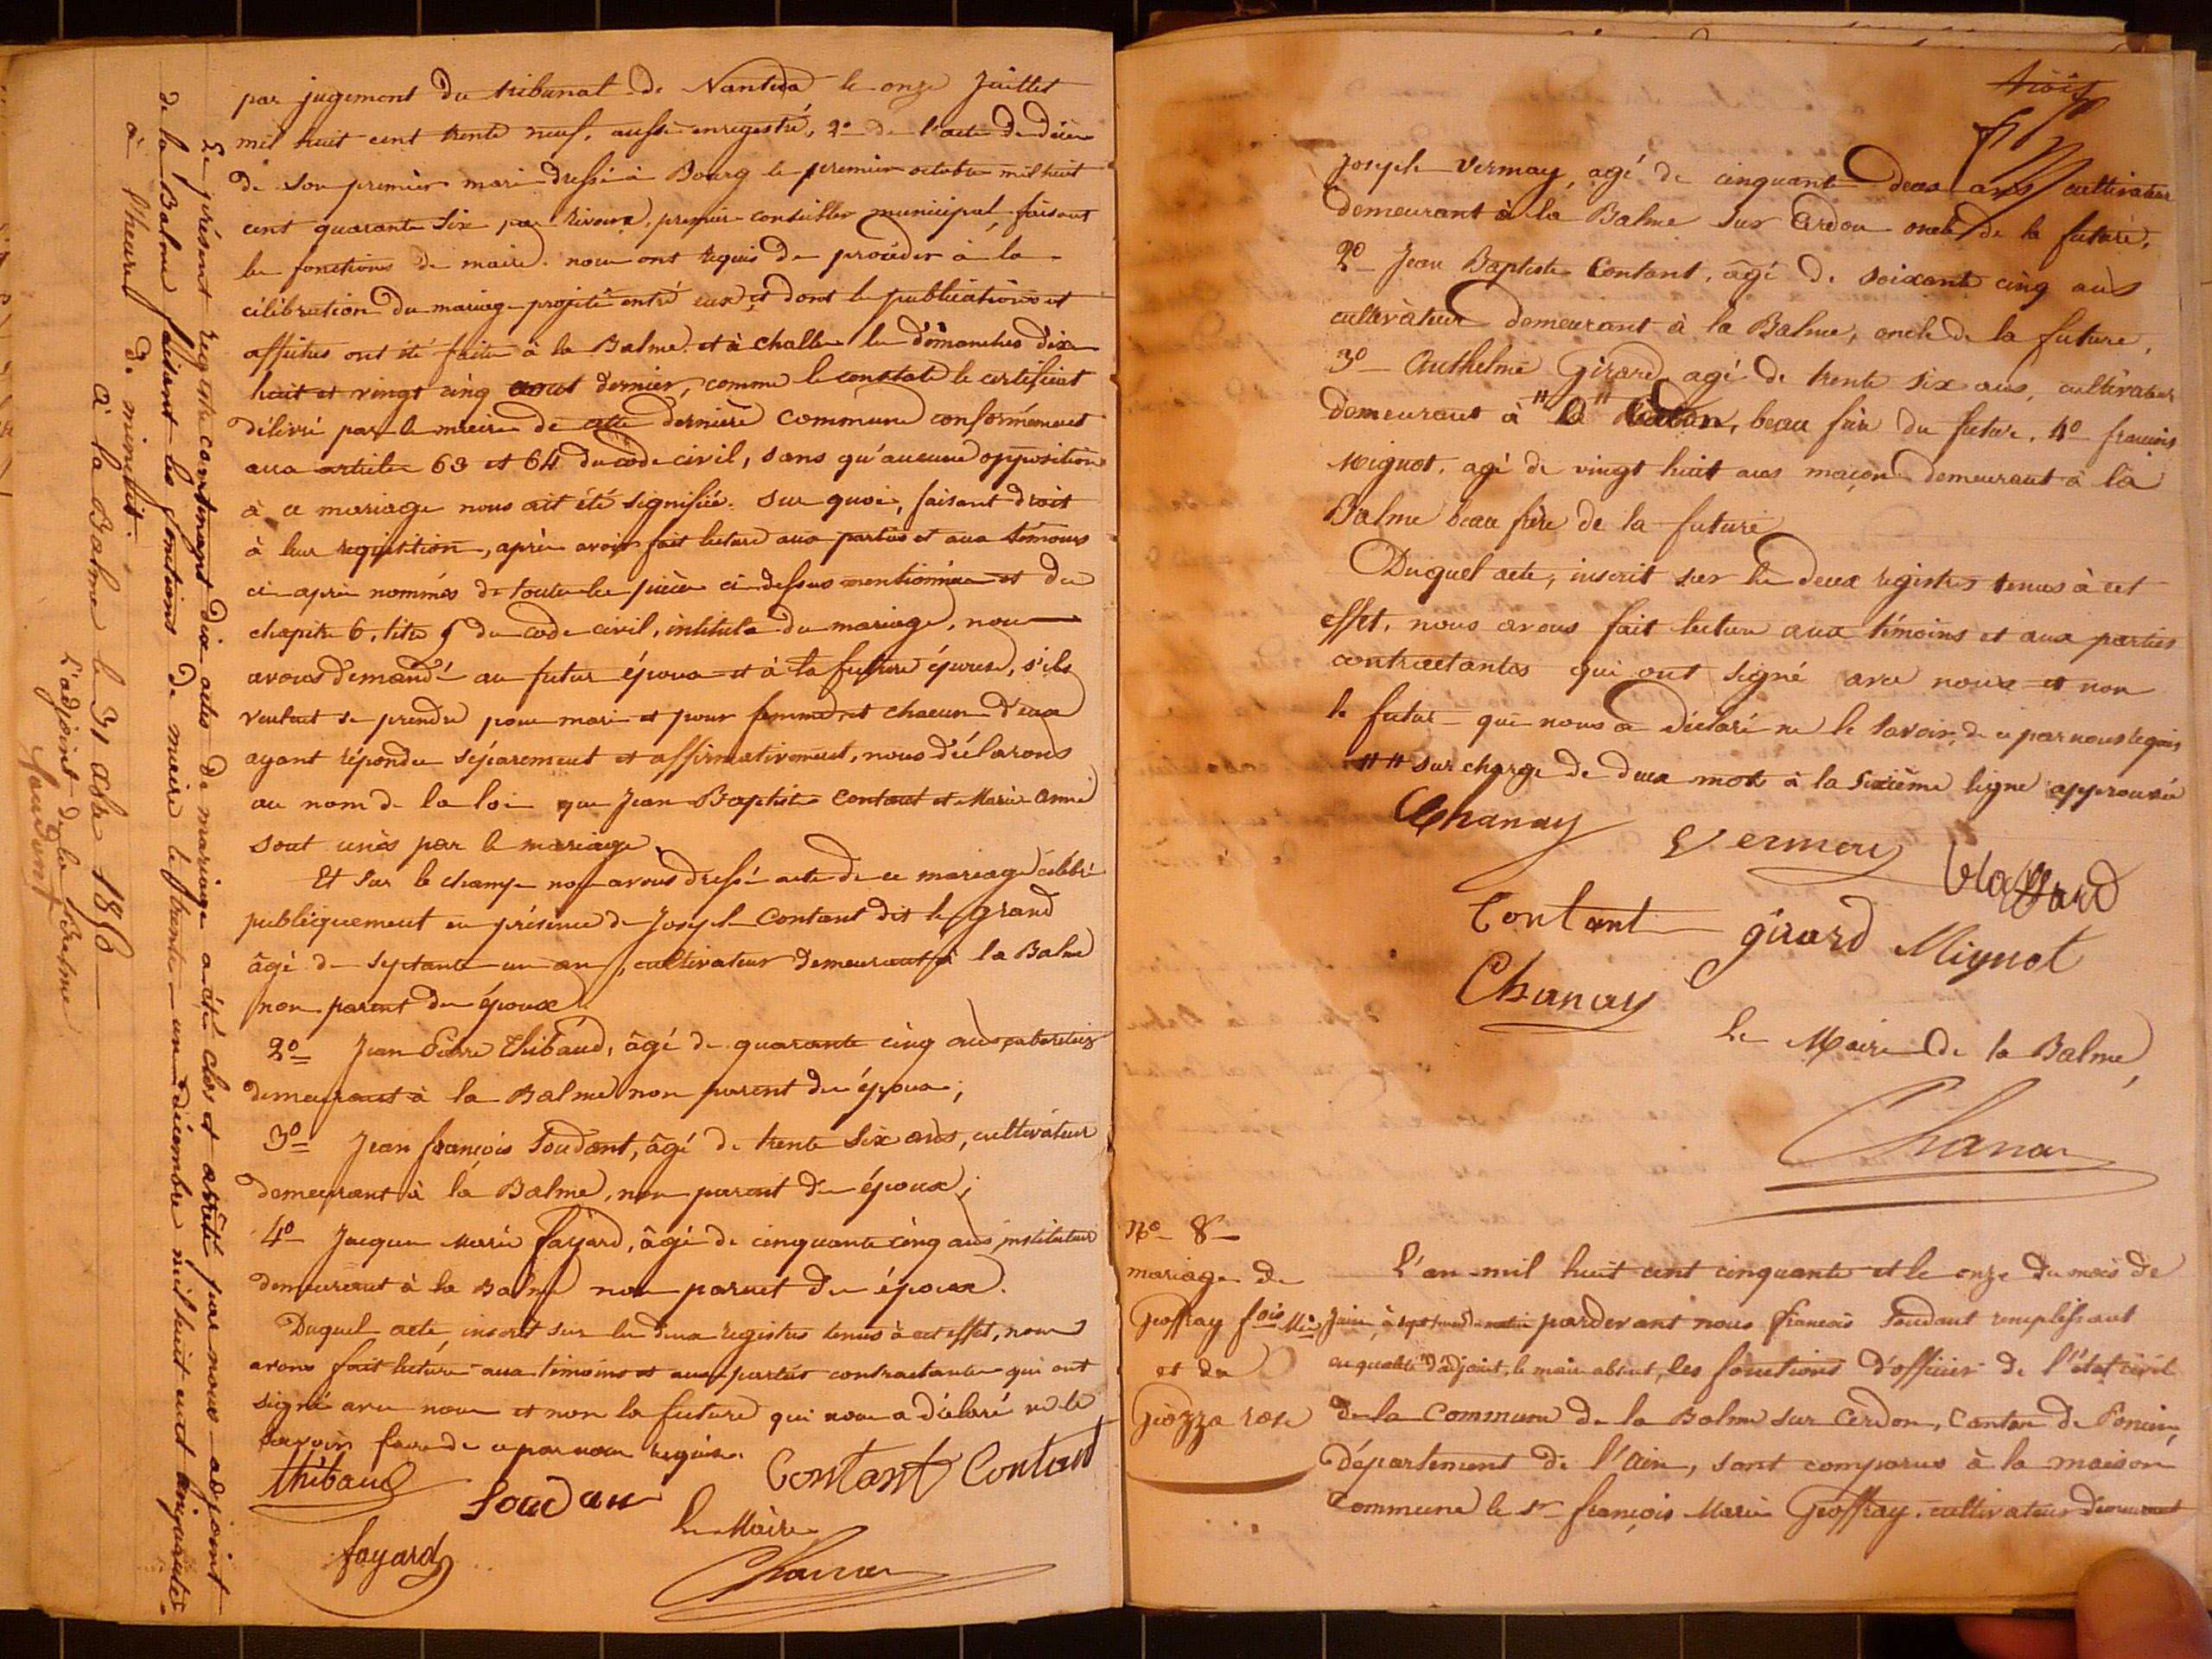 par jugement du tribunal de Nantua le onze Juillet
mil huit cent trente neuf, aussi enregistré, 2º de l'acte de décès
de son premier mari dressé à Bourg le premier octobre mil huit
cent quarante six par premier conseiller municipal faisant
les fonctions de maire. nous ont requis de procéder à la
célébration du mariage projeté entré eux et dont les publications et
affiches ont été faites à la Balme et à Challes les dimanches dix
huit et vingt cinq aout dernier, comme le constate le certificat
délivré par le maire de cette dernière commune conformément
aux articles 63 et 64 du code civil, sans qu'aucune opposition
à ce mariage nous ait été signifiée. Sur quoi, faisant droit
à leur requisition, après avoir fait lecture aux parties et aux témoins
ci après nommés de toutes les pièces ci dessus mentionnées et du
chapitre 6, titre 5 du code civil, intitulé du mariage, nous
avons demandé au futur époux et à la future épouse, s'ils
veulent se prendre pour mari et pour femme, et chacun d'eux
ayant répondu séparement et affirmativement, nous déclarons
au nom de la loi que Jean Baptiste Contant et Marie Anne
sont unis par le mariage
Et sur le champ nous avons dressé acte de ce mariage célébré
publiquement en présence de Joseph Contant dit le grand
âgé de septante un ans, cultivateur demeurant à la Balme
non parent des époux
2º Jean Pierre Thibaud, âgé de quarante cinq ans cabaretier
demeurant à la Balme non parent des époux;
3º Jean françois Soudant, âgé de trente six ans, cultivateur
demeurant à la Balme, non parent des époux;
4º Jacques Marie fayard, âgé de cinquante cinq ans instituteur
demeurant à la Balme non parent des époux.
Duquel acte, inscrit sur les deux registres tenus à cet effet, nous
avons fait lecture aux témoins et aux parties contractantes qui ont
signé avec nous et non la future qui nous a déclaré ne le
savoir faire de ce par nous requise.
thibaud Soudan Contant Contant
fayard Le Maire
Chanay
Le présent registre contenant dix actes de mariage a été clos et arrêté par nous adjoint
de la Balme faisant les fonctions de maire le trente un décembre mil huit cent cinquante
à l'heure de minuit.
à la Balme le 31 xbre 1850
L'adjoint de la Balme
Soudant
trois
Joseph Vermay, agé de cinquante deux ans cultivateur
demeurant à la Balme sur Cerdon oncle de la future,
2º Jean Baptiste Contant, âgé de soixante cinq ans
cultivateur demeurant à la Balme, oncle de la future,
3º Anthelme Girard, agé de trente six ans, cultivateur
demeurant à beau frère du futur, 4º françois
Mignot, agé de vingt huit ans maçon demeurant à la
Balme beau frère de la future
Duquel acte, inscrit sur les deux registres tenus à cet
effet, nous avons fait lecture aux témoins et aux parties
contractantes qui ont signé avec nous et non
le futur qui nous a déclaré ne le savoir, de ce par nous requis
surcharge de deux mots à la sixième ligne approuvée
Chanay Vermay
Contant girard Mignot
Chanay
Le Maire de la Balme,
Chanay
Nº 8
mariage de
Geoffray fois Mie
et de
Giozza rose
L'an mil huit cent cinquante et le onze du mois de
Juin, à sept heures du matin pardevant nous françois Soudant remplissant
en qualité d'adjoint, le maire absent, les fonctions d'officier de l'état civil
de la Commune de la Balme sur Cerdon, Canton de Poncin,
département de l'Ain, sont comparus à la maison
commune le sr françois Marie Geoffray, cultivateur demeurant